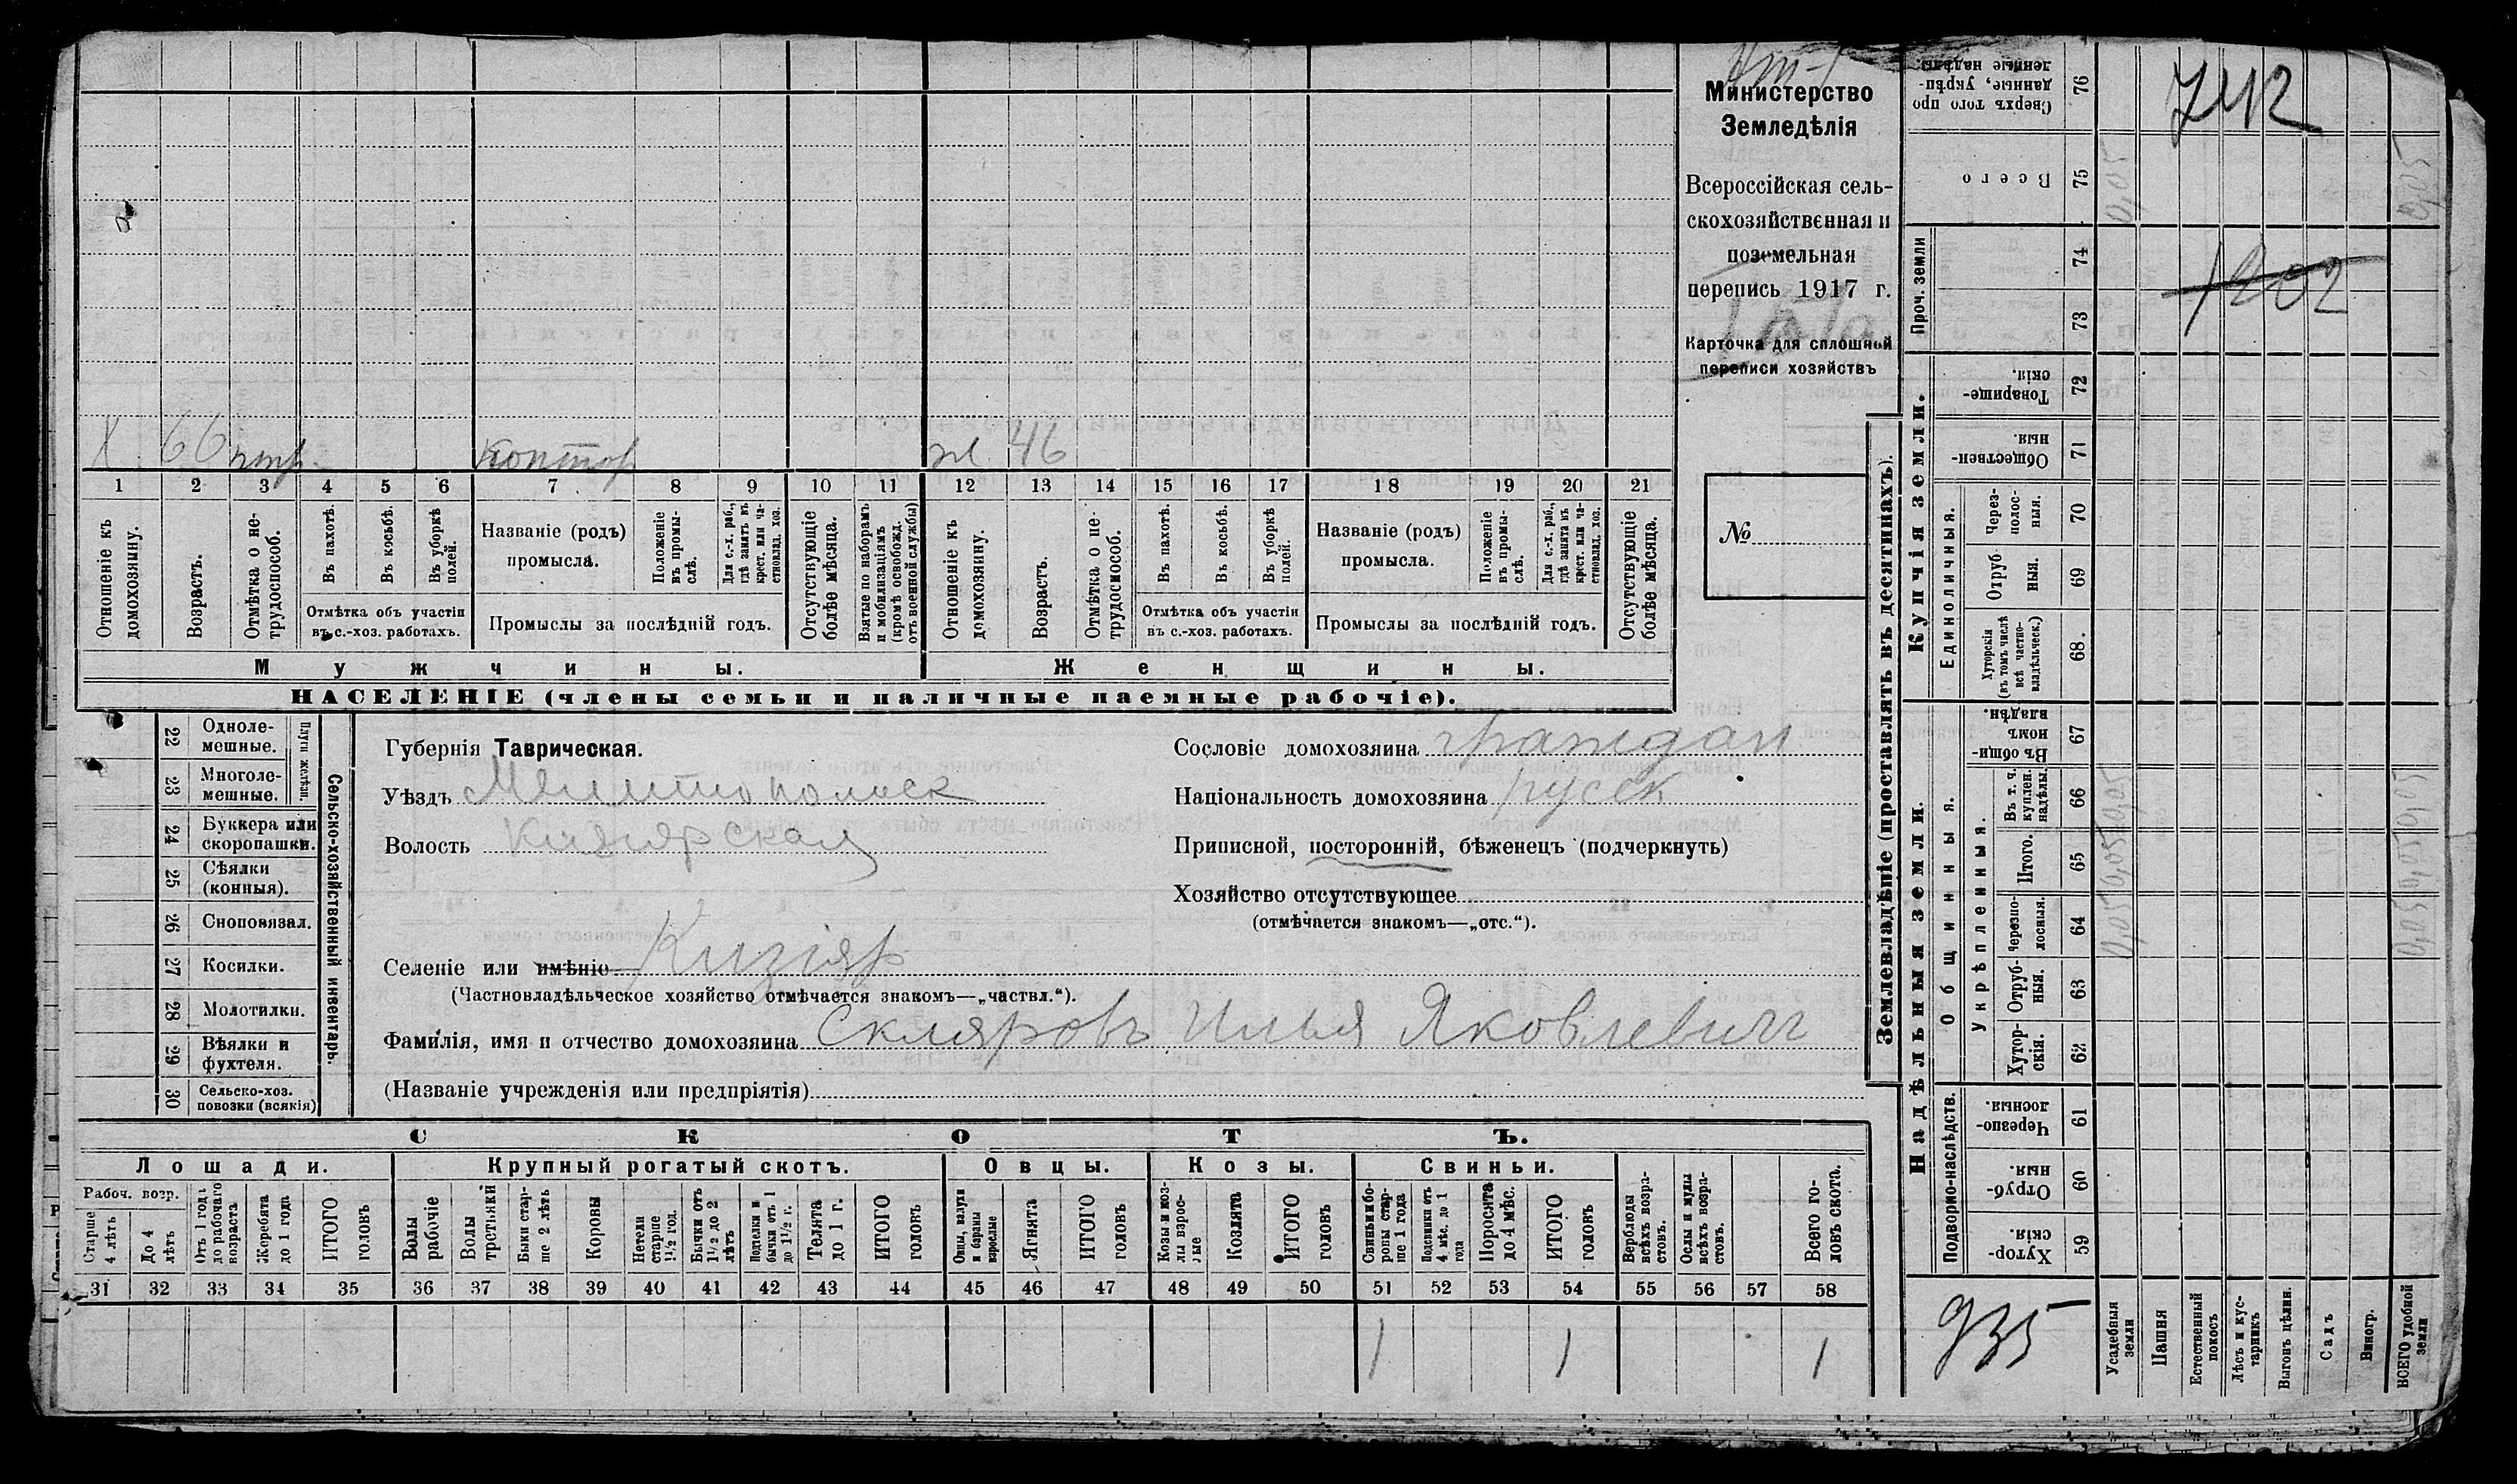 Министерство
Земледѣлія
Всероссійская сель-
скохозяйственная и
поземельная
перепись 1917 г.
Карточка для сплошной
переписи хозяйствъ
№
X 66 нтр. контор жл 46
1 2 3 4 5 6 7 8 9 10 11 12 13 14 15 16 17 18 19 20 21
Отношеніе къ домохозяину.
Возрастъ.
Отмѣтка о не-трудоспособ.
Въ пахотѣ.
Въ косьбѣ.
Въ уборкѣ полей.
Отмѣтка объ участіи
въ с.-хоз. работахъ.
Названіе (родъ)
промысла.
Положеніе въ промы-слѣ.
Для с.-х. раб., гдѣ занятъ въ крест. или ча-стновлад. хоз.
Промыслы за послѣдній годъ.
Отсутствующіе болѣе мѣсяца.
Взятые по наборамъ и мобилизаціямъ (кромѣ освобожд. отъ военной службы)
Отношеніе къ домохозяину.
Возрастъ.
Отмѣтка о не-трудоспособ.
Въ пахотѣ.
Въ косьбѣ.
Въ уборкѣ полей.
Отмѣтка объ участіи
въ с.-хоз. работахъ.
Названіе (родъ)
промысла.
Положеніе въ промы-слѣ.
Для с.-х. раб., гдѣ занята въ крест. или ча-стновлад. хоз.
Промыслы за послѣдній годъ.
Отсутствующіе болѣе мѣсяца.
Мужчины. Женщины.
НАСЕЛЕНІЕ (члены семьи и наличные наемные рабочіе).
22 Одноле-мешные.
23 Многоле-мешные.
Плуги желѣзн.
24 Буккера или скоропашки.
25 Сѣялки (конныя).
26 Сноповязал.
27 Косилки.
28 Молотилки.
29 Вѣялки и фухтеля.
30 Сельско-хоз. повозки (всякія)
Сельско-хозяйственный инвентарь.
Губернія Таврическая.
Уѣздъ Мелитопольск
Волость Кизіярская
Сословіе домохозяина граждан
Національность домохозяина русск
Приписной, посторонній, бѣженецъ (подчеркнуть)
Хозяйство отсутствующее
(отмѣчается знакомъ—„отс.“).
Селеніе или имѣніе Кизіяр
(Частновладѣльческое хозяйство отмѣчается знакомъ—„частвл.“).
Фамилія, имя и отчество домохозяина Скляровъ Илья Яковлевичъ
(Названіе учрежденія или предпріятія)
СКОТЪ.
Лошади. Крупный рогатый скотъ. Овцы. Козы. Свиньи.
Рабоч. возр.
Старше 4 лѣтъ
До 4 лѣтъ
Отъ 1 года до рабочаго возраста
Жеребята до 1 года
ИТОГО головъ
Волы рабочіе
Волы третьяки
Быки стар-ше 2 лѣтъ
Коровы
Нетели старше 1½ год.
Бычки отъ 1½ до 2 лѣтъ
Подтелки и бычки отъ 1 до 1½ г.
Телята до 1 г.
ИТОГО головъ
Овцы, валухи и бараны взрослые
Ягнята
ИТОГО головъ
Козы и коз-лы взрос-лые
Козлята
ИТОГО головъ
Свиньи и бо-ровы стар-ше 1 года
Подсвинки отъ 4 мѣс. до 1 года
Поросята до 4 мѣс.
ИТОГО головъ
Верблюды всѣхъ возра-стовъ.
Ослы и мулы всѣхъ возра-стовъ.
Всего го-ловъ скота.
31 32 33 34 35 36 37 38 39 40 41 42 43 44 45 46 47 48 49 50 51 52 53 54 55 56 57 58
1 1 1
Землевладѣніе (проставлять въ десятинахъ).
Сверхъ того про данные, укрѣп-ленные надѣлы. 76
Всего 75
Проч. земли 74 73
Купчія земли.
Товарище-скія. 72
Обществен-ныя. 71
Единоличныя.
Через-полос-ныя. 70
Отруб-ныя. 69
Хуторскія (въ томъ числѣ всѣ частно-владѣльческ.) 68.
Надѣльныя земли.
Общинныя.
Въ общи-номъ владѣн. 67
Укрѣпленныя.
Въ т. ч. куплен. надѣлы. 66
Итого. 65
Черезпо-лосныя. 64
Отруб-ныя. 63
Хутор-скія. 62
Подворно-наслѣдств.
Черезпо-лосныя. 61
Отруб-ныя. 60
Хутор-скія. 59
742
1202
0,05 0,05
0,05 0,05 0,05 0,05
0,05 0,05
935
Усадебныя земли
Пашня
Естественный покосъ
Лѣсъ и кус-тарникъ
Выгонъ цѣлин.
Садъ
Виногр.
ВСЕГО удобной земли